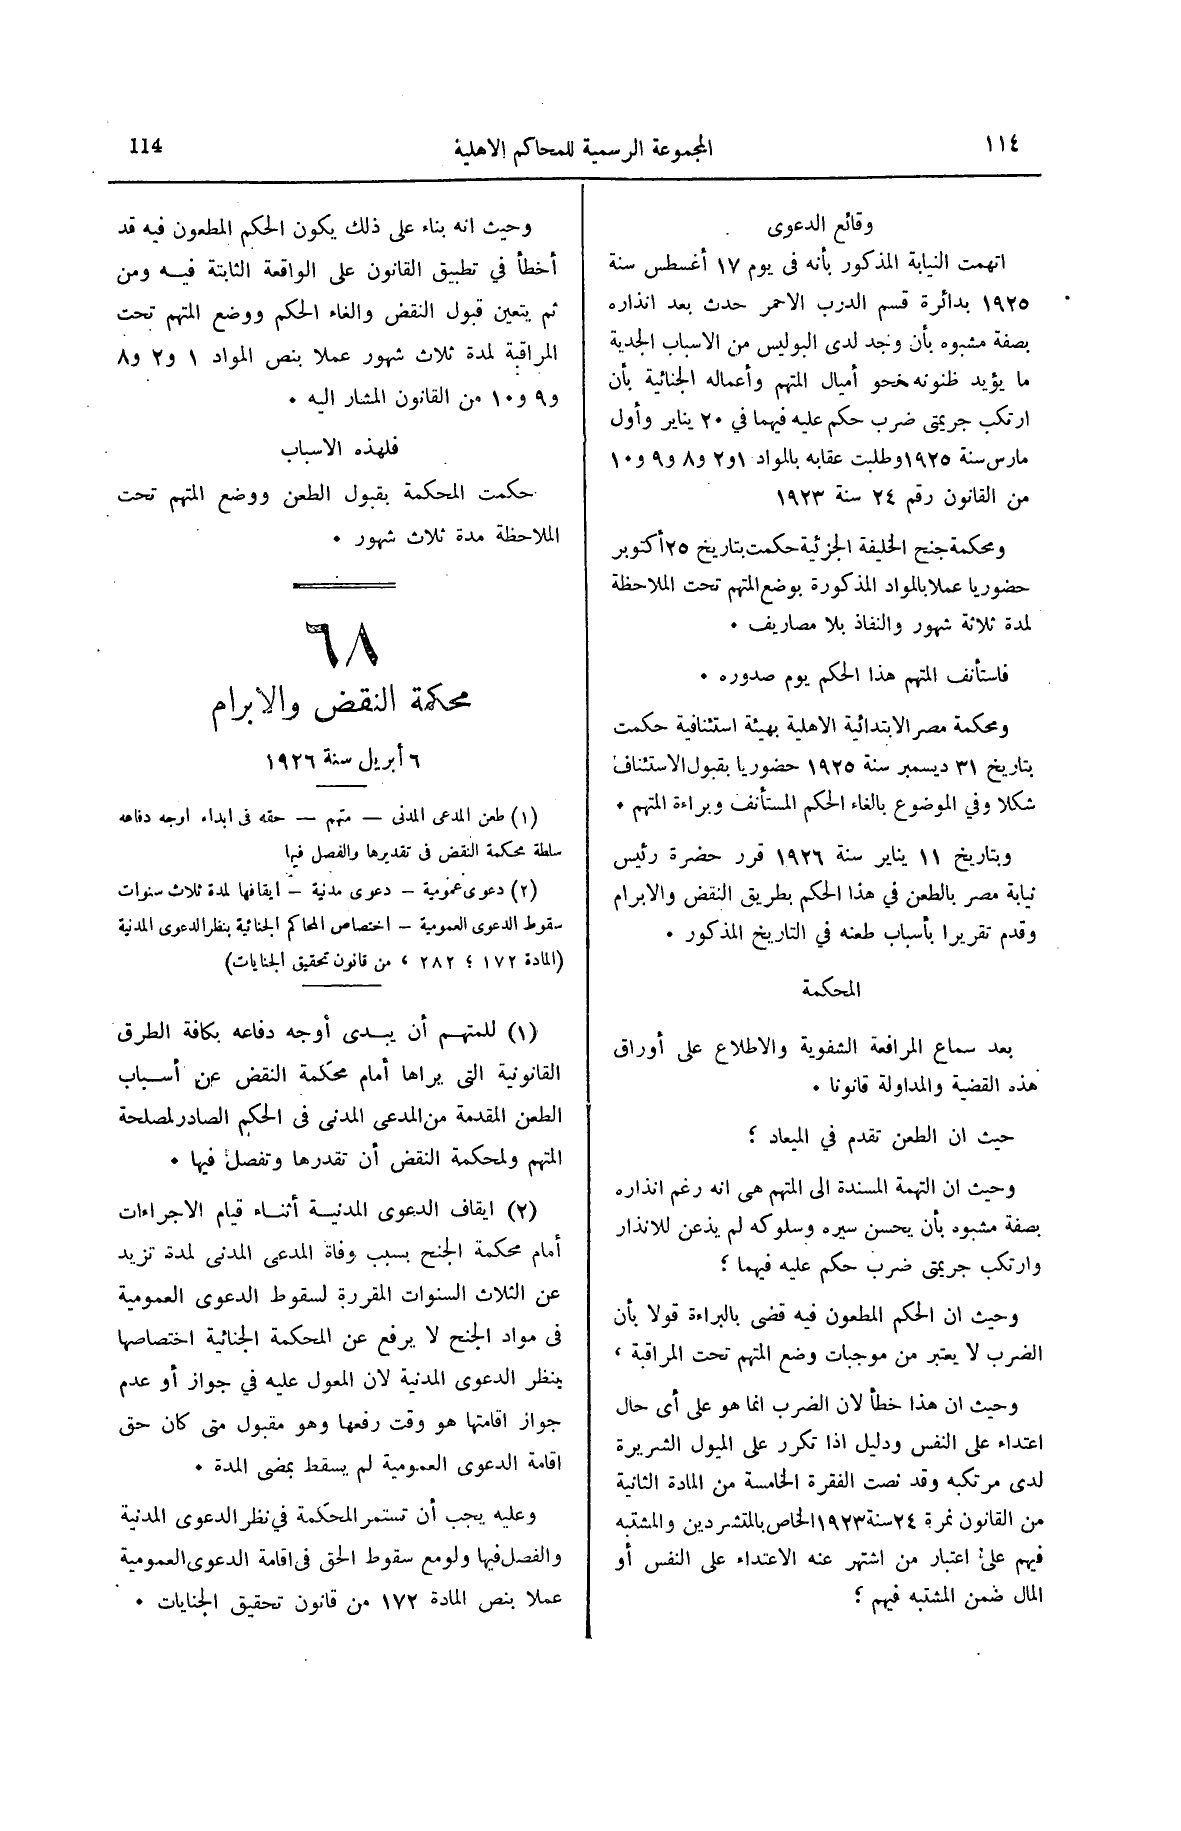 ١١٤
المجموعة الرسمية للمحاكم الاهلية
114
وقائع الدعوى
اتهمت النيابة المذكور بأنه فى يوم ١٧ أغسطس سنة
١٩٢٥ بدائرة قسم الدرب الاحمر حدث بعد انذاره
بصفة مشبوه بأن وجد لدى البوليس من الاسباب الجدية
ما يؤيد ظنونه نحو أميال المتهم وأعماله الجنائية بأن
ارتكب جريمتى ضرب حكم عليه فيهما في ٢٠ يناير وأول
مارس سنة ١٩٢٥ وطلبت عقابه بالمواد ١و٢ و٨ و٩ و١٠
من القانون رقم ٢٤ سنة ١٩٢٣
ومحكمة جنح الخليفة الجزئية حكمت بتاريخ ٢٥ أكتوبر
حضوريا عملا بالمواد المذكورة بوضع المتهم تحت الملاحظة
لمدة ثلاثة شهور والنفاذ بلا مصاريف .
فاستأنف المتهم هذا الحكم يوم صدوره .
ومحكمة مصر الابتدائية الاهلية بهيئة استئنافية حكمت
بتاريخ ٣١ ديسمبر سنة ١٩٢٥ حضوريا بقبول الاستئناف
شكلا وفي الموضوع بالغاء الحكم المستأنف وبراءة المتهم .
وبتاريخ ١١ يناير سنة ١٩٢٦ قرر حضرة رئيس
نيابة مصر بالطعن في هذا الحكم بطريق النقض والابرام
وقدم تقريرا بأسباب طعنه في التاريخ المذكور .
المحكمة
بعد سماع المرافعة الشفوية والاطلاع على أوراق
هذه القضية والمداولة قانونا .
حيث ان الطعن تقدم في الميعاد ؛
وحيث ان التهمة المسندة الى المتهم هى انه رغم انذاره
بصفة مشبوه بأن يحسن سيره وسلوكه لم يذعن للانذار
وارتكب جريمتى ضرب حكم عليه فيهما ؛
وحيث ان الحكم المطعون فيه قضى بالبراءة قولا بأن
الضرب لا يعتبر من موجبات وضع المتهم تحت المراقبة ،
وحيث ان هذا خطأ لان الضرب انما هو على أى حال
اعتداء على النفس ودليل اذا تكرر على الميول الشريرة
لدى مرتكبه وقد نصت الفقرة الخامسة من المادة الثانية
من القانون نمرة ٢٤ سنة ١٩٢٣ الخاص بالمتشردين والمشتبه
فيهم على اعتبار من اشتهر عنه الاعتداء على النفس أو
المال ضمن المشتبه فيهم ؛
وحيث انه بناء على ذلك يكون الحكم المطعون فيه قد
أخطأ في تطبيق القانون على الواقعة الثابتة فيه ومن
ثم يتعين قبول النقض والغاء الحكم ووضع المتهم تحت
المراقبة لمدة ثلاث شهور عملا بنص المواد ١ و٢ و٨
و٩ و١٠ من القانون المشار اليه .
فلهذه الاسباب
حكمت المحكمة بقبول الطعن ووضع المتهم تحت
الملاحظة مدة ثلاث شهور .
٦٨
محكمة النقض والابرام
٦ أبريل سنة ١٩٢٦
(١) طعن المدعى المدنى — متهم — حقه فى ابداء اوجه دفاعه
سلطة محكمة النقض فى تقديرها والفصل فيها
(٢) دعوى عمومية – دعوى مدنية – ايقافها لمدة ثلاث سنوات
سقوط الدعوى العمومية – اختصاص المحاكم الجنائية بنظر الدعوى المدنية
(المادة ١٧٢ ؛ ٢٨٢ ، من قانون تحقيق الجنايات)
(١) للمتهم أن يبدى أوجه دفاعه بكافة الطرق
القانونية التى يراها أمام محكمة النقض عن أسباب
الطعن المقدمة من المدعى المدنى فى الحكم الصادر لمصلحة
المتهم ولمحكمة النقض أن تقدرها وتفصل فيها .
(٢) ايقاف الدعوى المدنية أثناء قيام الاجراءات
أمام محكمة الجنح بسبب وفاة المدعى المدنى لمدة تزيد
عن الثلاث السنوات المقررة لسقوط الدعوى العمومية
فى مواد الجنح لا يرفع عن المحكمة الجنائية اختصاصها
بنظر الدعوى المدنية لان المعول عليه في جواز أو عدم
جواز اقامتها هو وقت رفعها وهو مقبول متى كان حق
اقامة الدعوى العمومية لم يسقط بمضى المدة .
وعليه يجب أن تستمر المحكمة في نظر الدعوى المدنية
والفصل فيها ولو مع سقوط الحق فى اقامة الدعوى العمومية
عملا بنص المادة ١٧٢ من قانون تحقيق الجنايات .